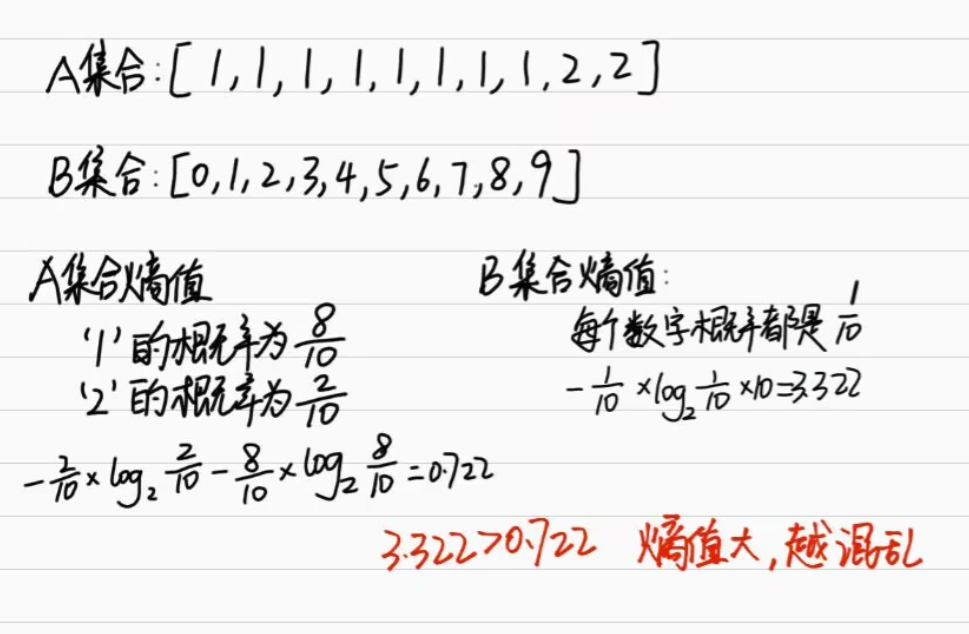 A集合:[1,1,1,1,1,1,1,1,2,2]
B集合:[0,1,2,3,4,5,6,7,8,9]
A集合熵值
'1'的概率为 8/10
'2'的概率为 2/10
-2/10×log₂ 2/10 - 8/10×log₂ 8/10 =0.722
B集合熵值:
每个数字概率都是 1/10
-1/10×log₂ 1/10 ×10=3.322
3.322>0.722 熵值大,越混乱